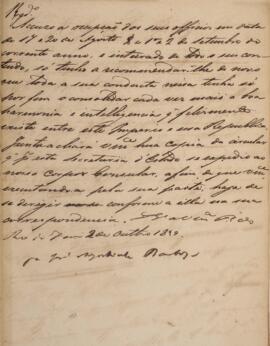 Regº
Accuso a recepção dos seus officios em data
de 17 e 20 de Agosto e 1 e 2 de Setembro do
corrente anno, e inteirado de todo o seu con-
teudo, só tenho a recommendar-lhe de novo
em toda a sua conducta nessa tenha só
por fim o consolidar cada vez mais a boa
harmonia e intelligencia q felizmente
existe entre este Imperio e essa Republica
Junta achará vm.ce uma copia da circular
q p.r esta Secretaria d'Estado se expedio ao
nosso Corpo Consular, afim de que vm.ce
executando-a pela sua parte, haja de
se dirigir conforme a ella na sua
correspondencia. Ds.
Rio de Jan.ro 2 de Outbro 18